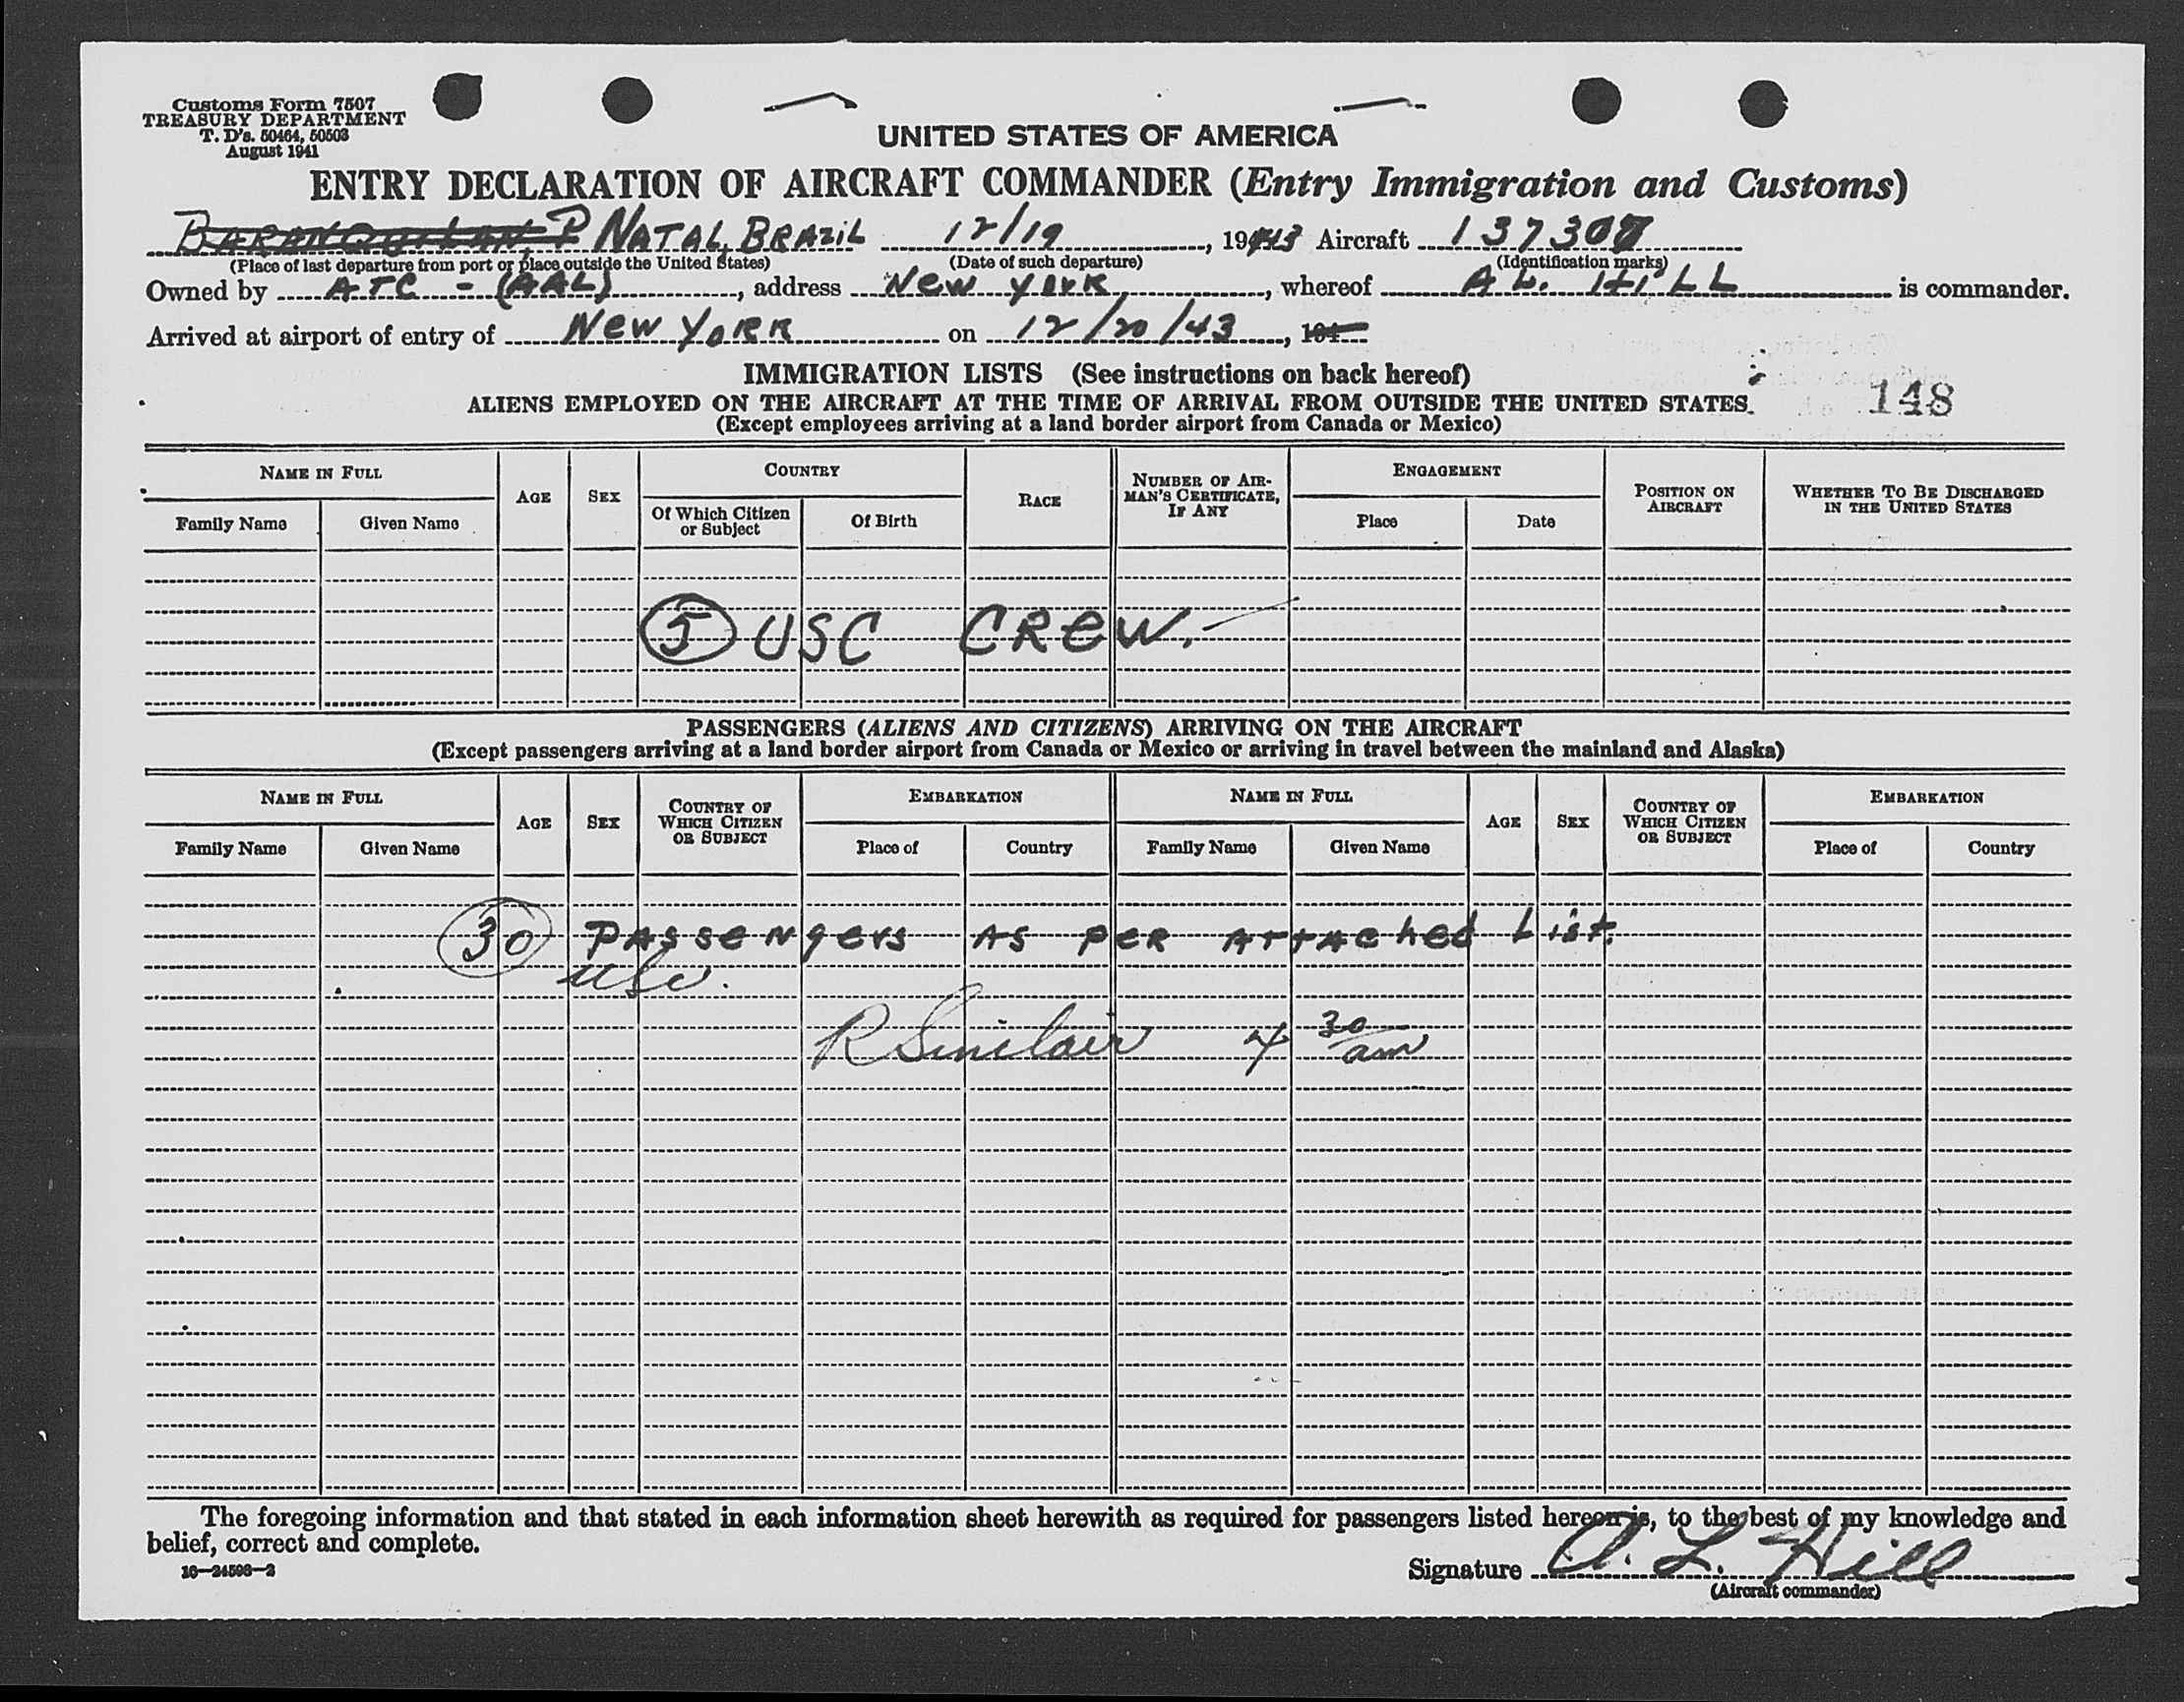 Customs Form 7507
TREASURY DEPARTMENT
T. D's. 50464, 50503
August 1941
UNITED STATES OF AMERICA
ENTRY DECLARATION OF AIRCRAFT COMMANDER (Entry Immigration and Customs)
NATAL, BRAZIL 12/19, 1943 Aircraft 137307
(Place of last departure from port or place outside the United States) (Date of such departure) (Identification marks)
Owned by ATC - (AAL), address New York, whereof A L. HiLL is commander.
Arrived at airport of entry of New York on 12/20/43, 194
IMMIGRATION LISTS (See instructions on back hereof)
148
ALIENS EMPLOYED ON THE AIRCRAFT AT THE TIME OF ARRIVAL FROM OUTSIDE THE UNITED STATES
(Except employees arriving at a land border airport from Canada or Mexico)
NAME IN FULL AGE SEX COUNTRY RACE NUMBER OF AIRMAN'S CERTIFICATE, IF ANY ENGAGEMENT POSITION ON AIRCRAFT WHETHER TO BE DISCHARGED IN THE UNITED STATES
Family Name Given Name Of Which Citizen or Subject Of Birth Place Date
5 USC CREW.
PASSENGERS (ALIENS AND CITIZENS) ARRIVING ON THE AIRCRAFT
(Except passengers arriving at a land border airport from Canada or Mexico or arriving in travel between the mainland and Alaska)
NAME IN FULL AGE SEX COUNTRY OF WHICH CITIZEN OR SUBJECT EMBARKATION NAME IN FULL AGE SEX COUNTRY OF WHICH CITIZEN OR SUBJECT EMBARKATION
Family Name Given Name Place of Country Family Name Given Name Place of Country
30 Passengers AS PER Attached List.
usc.
R Sinclair 4 30 am
The foregoing information and that stated in each information sheet herewith as required for passengers listed hereon is, to the best of my knowledge and
belief, correct and complete.
16—24598—2
Signature A. L. Hill
(Aircraft commander)